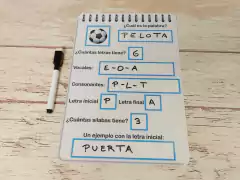 ¿Cuál es la palabra?
PELOTA
¿Cuántas letras tiene? 6
Vocales: E-O-A
Consonantes: P-L-T
Letra inicial P Letra final A
¿Cuántas sílabas tiene? 3
Un ejemplo con la letra inicial:
PUERTA